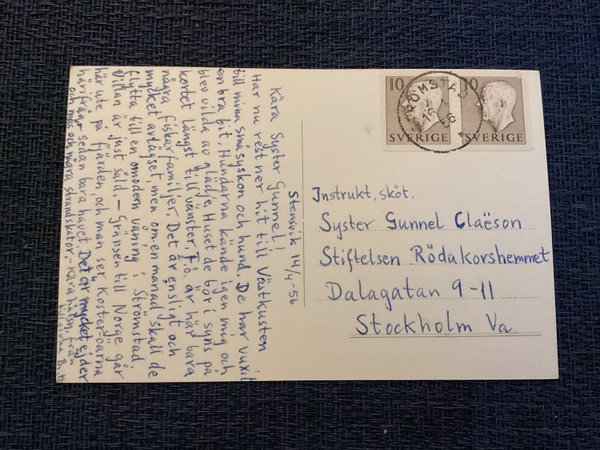 Stensvik 14/4-56
Kära Syster Gunnel!
Har nu rest ner hit till Västkusten
till mina små syskon och hund. De har vuxit
en bra bit. Hundarna kände igen mig och
blev vilda av glädje. Huset de bor i syns på
kortet längst till vänster. F.ö. är här bara
några fiskarfamiljer. Det är ensligt och
mycket avlägset men om en månad skall de
flytta till en omodern våning i Strömstad
Villan är just såld, – Gränsen till Norge går
här ute på fjärden och man ser Kosteröarna
härifrån sedan bara havet. Det är mycket
och mås och många strandskator. Kära hälsn. från
10
SVERIGE
10
SVERIGE
Instrukt. sköt.
Syster Gunnel Claëson
Stiftelsen Rödakorshemmet
Dalagatan 9-11
Stockholm Va